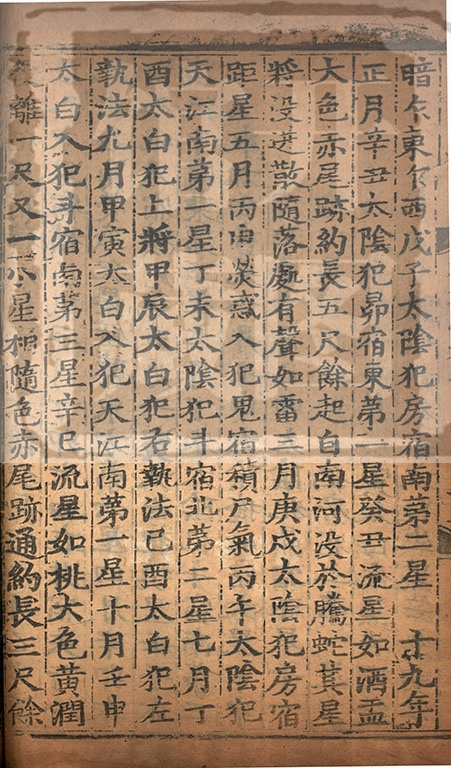 暗乍東乍西戊子太陰犯房宿南第二星 十九年
正月辛丑太陰犯昴宿東第一星癸丑流星如酒盃
大色赤尾跡約長五尺餘起自南河没於騰蛇其星
將没迸散隨落處有聲如雷三月庚戌太陰犯房宿
距星五月丙申熒惑入犯鬼宿積尸氣丙午太陰犯
天江南第一星丁未太陰犯斗宿北第二星七月丁
酉太白犯上將甲辰太白犯右執法己酉太白犯左
執法九月甲寅太白入犯天江南第一星十月壬申
太白入犯斗宿南第三星辛巳流星如桃大色黃潤
後離一尺又一小星相隨色赤尾跡通約長三尺餘